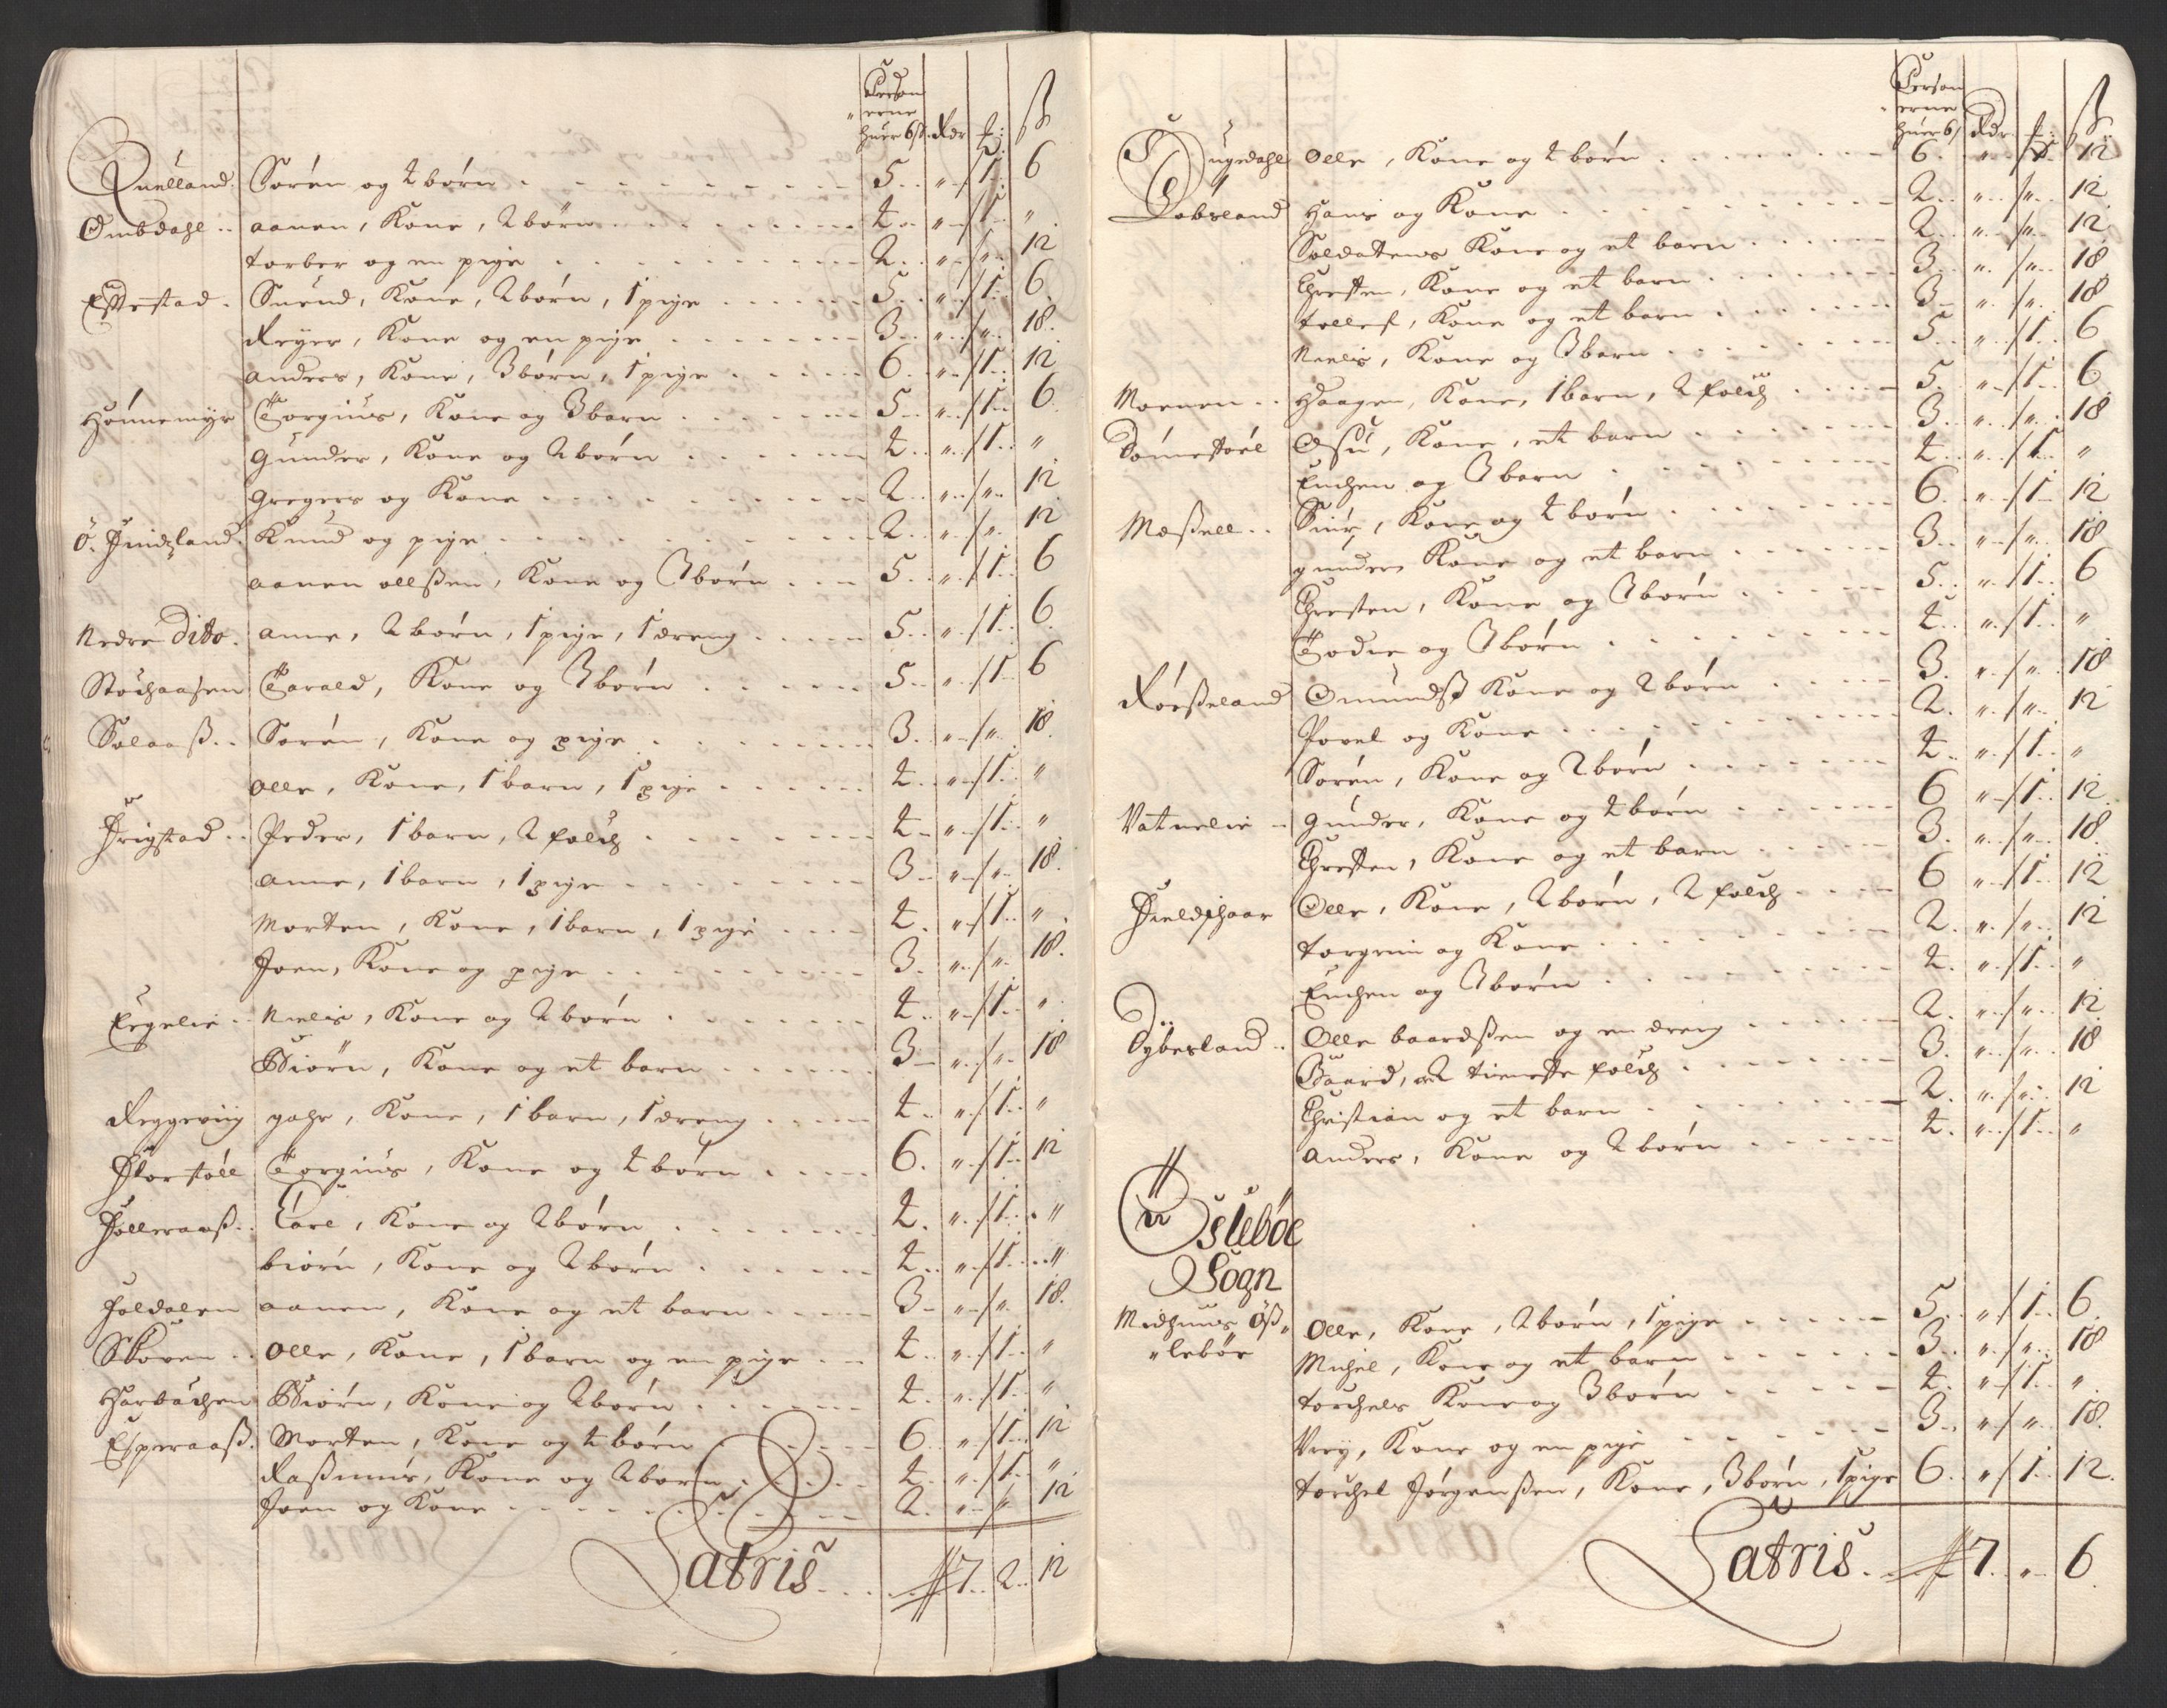 Person
erne
huer 6 ß. Rdr ț: ß
Quelland. Sorën og 4 börn 5 " 1 6
Ombdahl aanen, Kone, 2 börn 4 " 1 "
torber og en pige 2 " " 12
Effestad Suend, Kone, 2 börn, 1 pige 5 " 1 6
Reyer, Kone og en pige 3 " " 18
anders, Kone, 3 börn, 1 pige 6 " 1 12
Hönnemyr Torgius, Kone og 3 barn 5 " 1 6
Gunder, Kone og 2 börn 4 " 1 "
Gregers og Kone 2 " " 12
Ö. Findzland Knud og pige 2 " " 12
aanen ollßen, Kone og 3 börn 5 " 1 6
Nedre Dito anne, 2 börn, 1 pige, 1 dreng 5 " 1 6
Stochaasen Tarald, Kone og 3 börn 5 " 1 6
Solaaß Sorën, Kone og pige 3 " " 18
olle, Kone, 1 barn, 1 pige 4 " 1 "
Frigstad Peder, 1 barn, 2 folch 4 " 1 "
anne, 1 barn, 1 pige 3 " " 18
Morten, Kone, 1 barn, 1 pige 4 " 1 "
Joen, Kone og pige 3 " " 18
Ergelie Nielis, Kone og 2 börn 4 " 1 "
Biörn, Kone og et barn 3 " " 18
Reggeviig gahr, Kone, 1 barn, 1 dreng 4 " 1 "
Flottöll Torgius, Kone og 4 börn 6 " 1 12
Holleraaß Tarl, Kone og 2 börn 4 " 1 "
biörn, Kone og 2 börn 4 " 1 "
Foldalen aanen, Kone og et barn 3 " " 18
Skoven olle, Kone, 1 barn og en pige 4 " 1 "
Harbachen Biörn, Kone og 2 börn 4 " 1 "
Esperaaß Morten, Kone og 4 börn 6 " 1 12
Raßmus, Kone og 2 börn 4 " 1 "
Joen og Kone 2 " " 12
Latris 7 2 12
Person
erne
huer 6 ß Rdr ț: ß
Tugedahl olle, Kone og 4 börn 6 " 1 12
Lobsland Hans og Kone 2 " " 12
Soldattens Kone og et barn 2 " " 12
Chresten, Kone og et barn 3 " " 18
tollef, Kone og et barn 3 " " 18
Nielis, Kone og 3 barn 5 " 1 6
Moenen Haagen, Kone, 1 barn, 2 folch 5 " 1 6
Dömestöel Osu, Kone, et barn 3 " " 18
Enchen og 3 barn 4 " 1 "
Mæßell Siur, Kone og 4 börn 6 " 1 12
gunder Kone og et barn 3 " " 18
Chresten, Kone og 3 börn 5 " 1 6
Todne og 3 börn 4 " 1 "
Rörßeland Omundß Kone og 2 börn 3 " " 18
Povel og Kone 2 " " 12
Sorën, Kone og 2 börn 4 " 1 "
Vatnelie Gunder, Kone og 4 börn 6 " 1 12
Chresten, Kone og et barn 3 " " 18
Fieldschaar Olle, Kone, 2 börn, 2 folch 6 " 1 12
torgrim og Kone 2 " " 12
Enchen og 3 börn 4 " 1 "
Dybesland Olle baardßen og en dreng 2 " " 12
Baard, 2 tieneste folch 3 " " 18
Christian og et barn 2 " " 12
Anders, Kone og 2 börn 4 " 1 "
Ösleböe
Sogn
Midhuus Öß= olle, Kone, 2 börn, 1 pige 5 " 1 6
=leböe Michel, Kone og et barn 3 " " 18
torchels Kone og 3 börn 4 " 1 "
Very, Kone og en pige 3 " " 18
torchel Jörgenßen, Kone, 3 börn, 1 pige 6 " 1 12
Latris 7 " 6